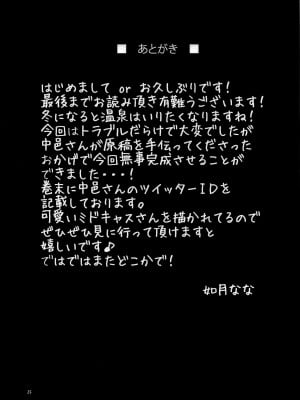 ■ あとがき ■
はじめまして or お久しぶりです!
最後までお読み頂き有難うございます!
冬になると温泉はいりたくなりますね!
今回はトラブルだらけで大変でしたが
中邑さんが原稿を手伝ってくださった
おかげで今回無事完成させることが
できました・・・!
巻末に中邑さんのツイッターIDを
記載しております。
可愛いミドキャスさんを描かれてるので
ぜひぜひ見に行って頂けますと
嬉しいです♪
ではではまたどこかで!
如月なな
25